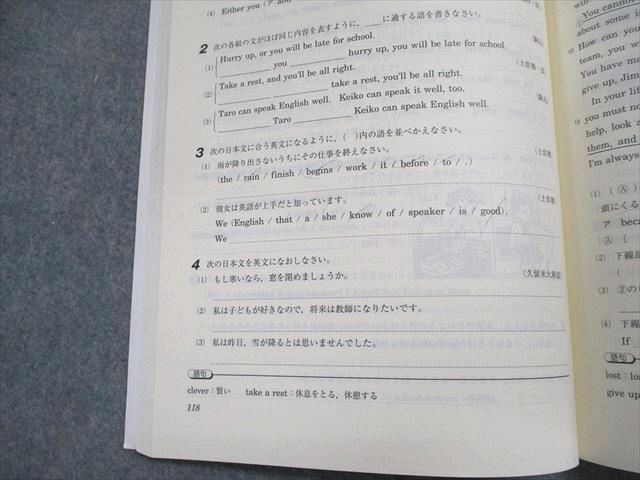 (4) Either you (ア and
2 次の各組の文がほぼ同じ内容を表すように, ____に適する語を書きなさい。
(1) Hurry up, or you will be late for school.
____ you ____ hurry up, you will be late for school.
(2) Take a rest, and you'll be all right.
____ ____ take a rest, you'll be all right.
(3) Taro can speak English well. Keiko can speak it well, too.
____ Taro ____ Keiko can speak English well.
3 次の日本文に合う英文になるように, ( )内の語を並べかえなさい。
(1) 雨が降り出さないうちにその仕事を終えなさい。
(the / rain / finish / begins / work / it / before / to / .)
(2) 彼女は英語が上手だと知っています。
We (English / that / a / she / know / of / speaker / is / good).
We
4 次の日本文を英文になおしなさい。
(1) もし寒いなら, 窓を閉めましょうか。
(久留米大附設)
(2) 私は子どもが好きなので, 将来は教師になりたいです。
(3) 私は昨日, 雪が降るとは思いませんでした。
語句
clever:賢い take a rest:休息をとる, 休憩する
118
You cannot
about some
How can you
team, you w
You have ma
give up, Jim
In your lif
you must n
help, look a
them, and
I'm always
(1) (Ⓐ)
頭にくる
ア beca
Ⓐ (
(2) 下線部
(
(3) ②の
(
(4) 下線
If
語句
lost:los
give up